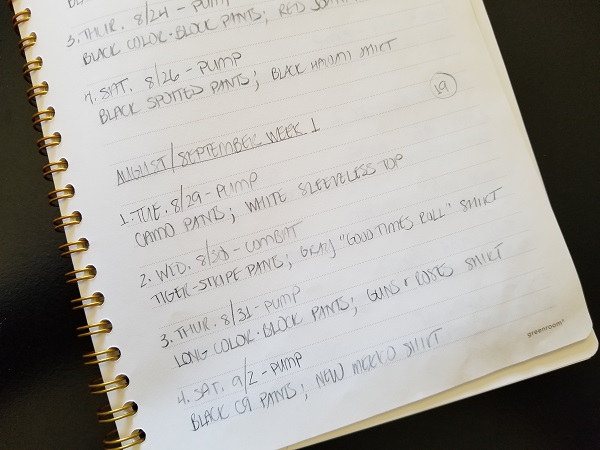 3. THUR. 8/24 - PUMP
BLACK COLOR-BLOCK PANTS; RED
4. SAT. 8/26 - PUMP
BLACK SPOTTED PANTS; BLACK HAWAII SHIRT
19
AUGUST/SEPTEMBER WEEK 1
1. TUE. 8/29 - PUMP
CAMO PANTS; WHITE SLEEVELESS TOP
2. WED. 8/30 - COMBAT
TIGER-STRIPE PANTS; GRAY "GOOD TIMES ROLL" SHIRT
3. THUR. 8/31 - PUMP
LONG COLOR-BLOCK PANTS; GUNS & ROSES SHIRT
4. SAT. 9/2 - PUMP
BLACK C9 PANTS; NEW MEXICO SHIRT
greenroom